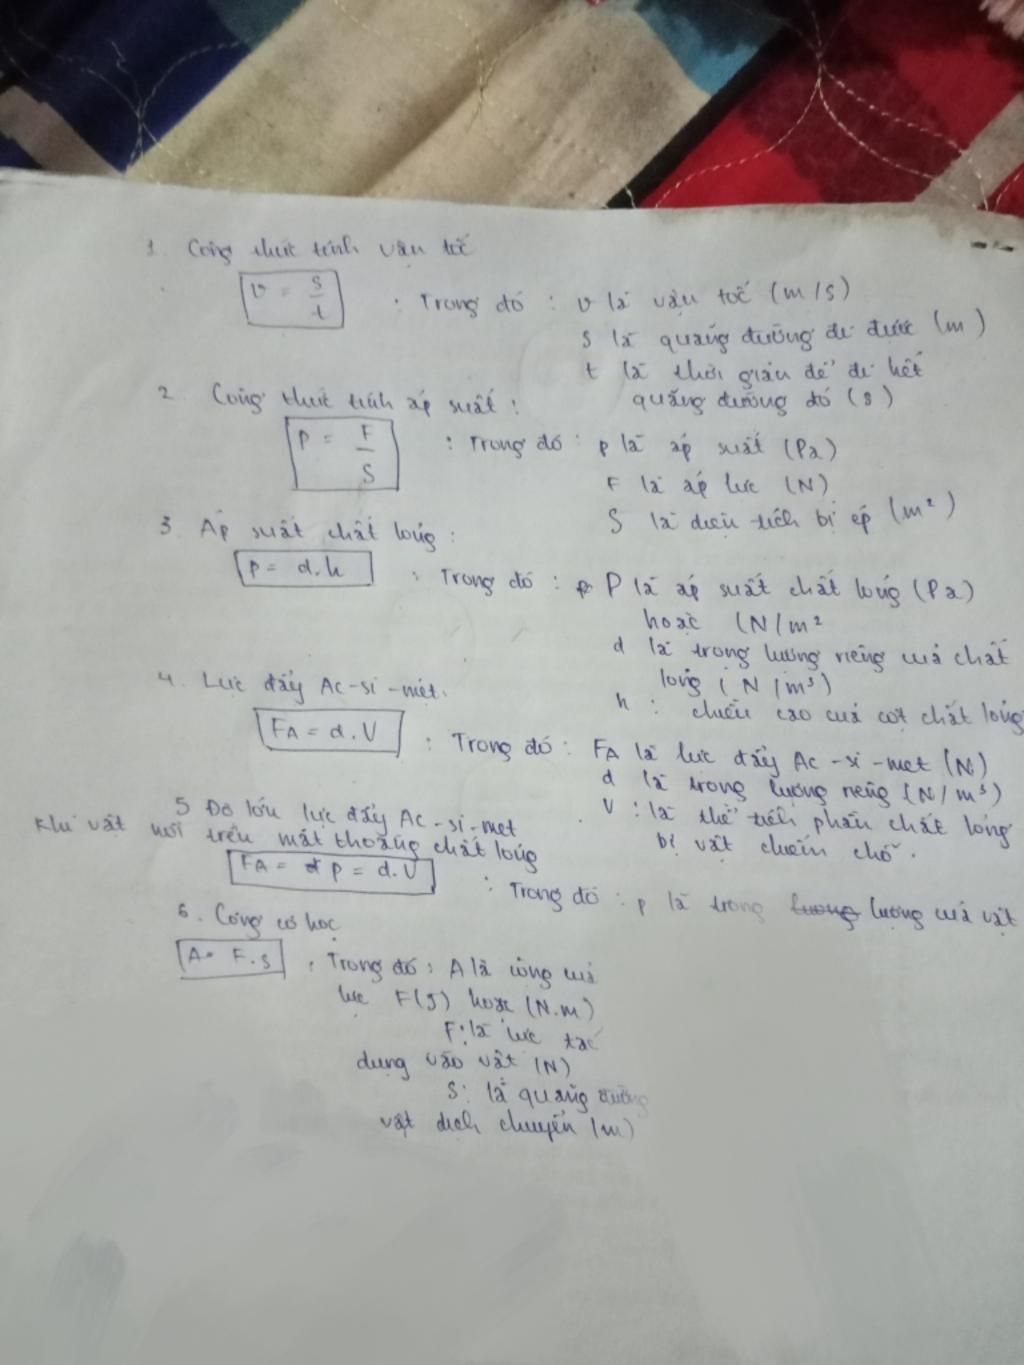 1. Công thức tính vận tốc
v = s/t : Trong đó : v là vận tốc (m/s)
s là quãng đường đi được (m)
t là thời gian để đi hết
quãng đường đó (s)
2. Công thức tính áp suất :
p = F/S : Trong đó : p là áp suất (Pa)
F là áp lực (N)
S là diện tích bị ép (m²)
3. Áp suất chất lỏng :
p = d.h : Trong đó : P là áp suất chất lỏng (Pa)
hoặc (N/m²
d là trọng lượng riêng của chất
lỏng (N/m³)
h : chiều cao của cột chất lỏng
4. Lực đẩy Ac-si-mét.
FA = d.V : Trong đó : FA là lực đẩy Ac-si-met (N)
d là trọng lượng riêng (N/m³)
V : là thể tích phần chất lỏng
bị vật chiếm chỗ.
5 Độ lớn lực đẩy Ac-si-met
Khi vật nổi trên mặt thoáng chất lỏng
FA = p = d.V : Trong đó : p là trọng lượng của vật
6. Công cơ học
A = F.s : Trong đó : A là công của
lực F(J) hoặc (N.m)
F: là lực tác
dụng vào vật (N)
S: là quãng đường
vật dịch chuyển (m)